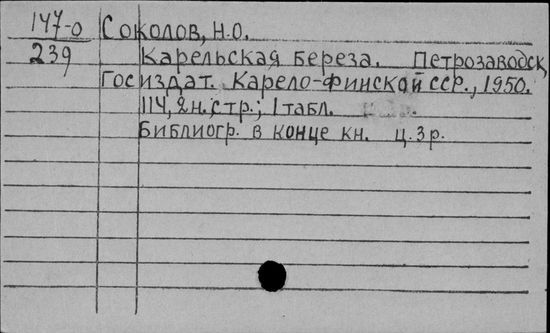 147-0 Соколов, Н.О.
239 Карельская береза. Петрозаводск,
Госиздат. Карело-Финской ССР., 1950.
114, 2 н. стр.; 1 табл.
Библиогр. в конце кн. ц. 3 р.